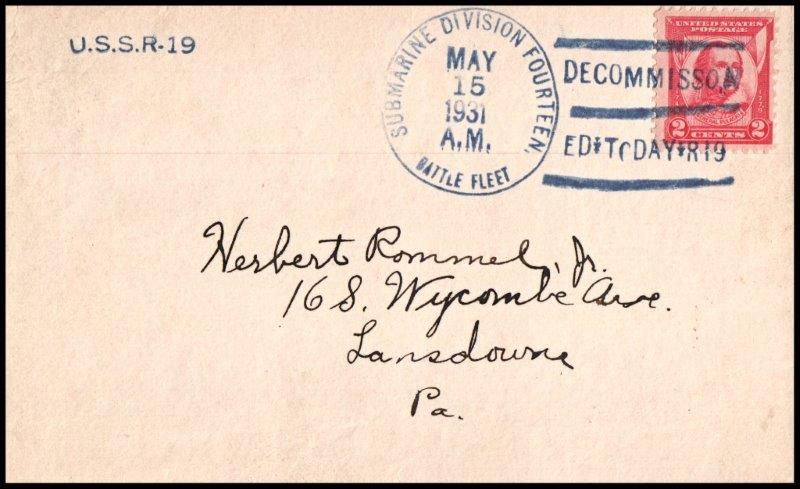 U.S.S.R-19
SUBMARINE DIVISION FOURTEEN,
MAY
15
1931
A.M.
BATTLE FLEET
DECOMMISSON
ED*TODAY*R19
UNITED STATES
POSTAGE
1779
2 CENTS 2
Herbert Rommel, Jr.
16 S. Wycombe Ave.
Lansdowne
Pa.